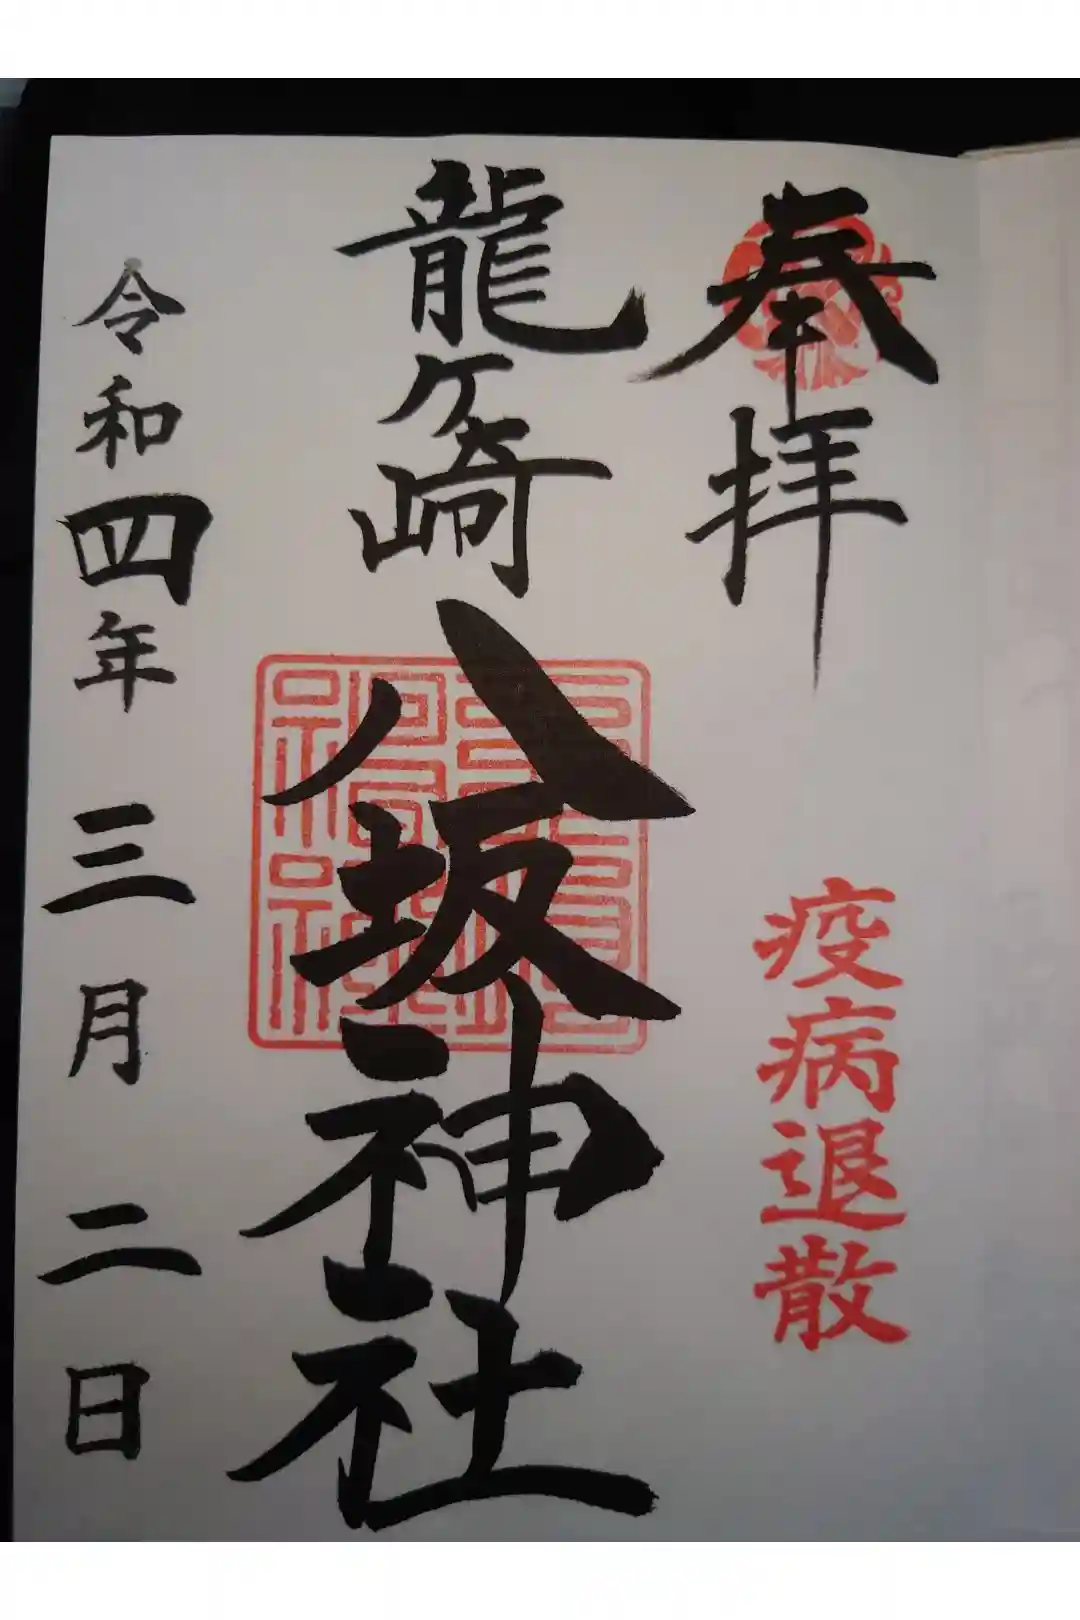 奉拝
疫病退散
龍ケ崎
八坂神社
令和四年三月二日